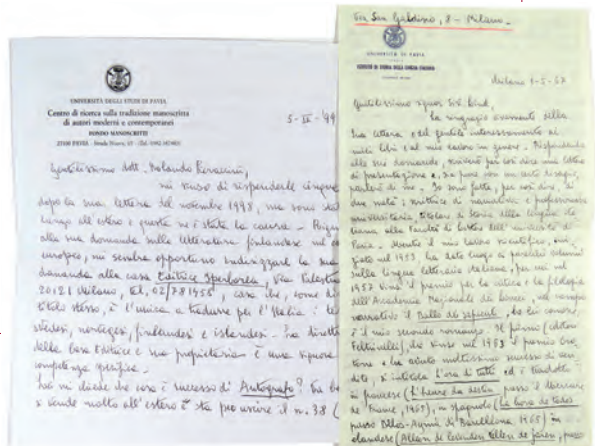 UNIVERSITÀ DEGLI STUDI DI PAVIA
Centro di ricerca sulla tradizione manoscritta
di autori moderni e contemporanei
FONDO MANOSCRITTI
27100 PAVIA - Strada Nuova, 65
5-IX-'99
Gentilissimo dott. Rolando Pieraccini,
mi scuso di risponderle cinque
dopo la sua lettera del novembre 1998, ma sono stat
lungo all'estero e questa ne è stata la causa.
alla sua domanda sulla letteratura finlandese nel co
europeo, mi sembra opportuno indirizzare la sua
domanda alla casa Editrice Iperborea, Via Palestro
20121 Milano, tel. 02/781458, casa che, come di
titolo stesso, è l'unica a tradurre per l'Italia i te
svedesi, norvegesi, finlandesi e islandesi. La diretto
della Casa Editrice e sua proprietaria è una signora
competenza specifica.
Poi mi chiede che cosa è successo di Autografo? Va be
si vende molto all'estero e sta per uscire il n. 38 (
Via San Galdino, 8 - Milano.
UNIVERSITÀ DI PAVIA
ISTITUTO DI STORIA DELLA LINGUA ITALIANA
Milano 1-5-67
Gentilissimo signor
la ringrazio vivamente della
sua lettera e del gentile interessamento ai
miei libri e al mio lavoro in genere. Rispondendo
alle sue domande, scriverò per così dire una lettera
di presentazione e, sia pure non un certo disagio,
parlerò di me. Io sono fatta, per così dire, di
due metà: scrittrice di narrativa e professoressa
universitaria, titolare di Storia della lingua ita
liana alla Facoltà di lettere dell'università di
Pavia. Mentre il mio lavoro scientifico, ini
ziato nel 1953, ha dato luogo a parecchi volumi
sulla lingua letteraria italiana, per cui nel
1957 vinsi il premio per la critica e la filologia
dell'Accademia Nazionale dei Lincei, nel campo
narrativo il Ballo dei sapienti, che lei conosce,
è il mio secondo romanzo. Il primo (editore
Feltrinelli), che vinse nel 1963 il premio
e ha avuto moltissimo successo di ven
dite, si intitola L'ora di tutti ed è tradotto
in francese (L'heure du destin presso il Mercure
de France, 1965), in spagnolo (La hora de todos
presso Ayma di Barcellona, 1965) in
olandese